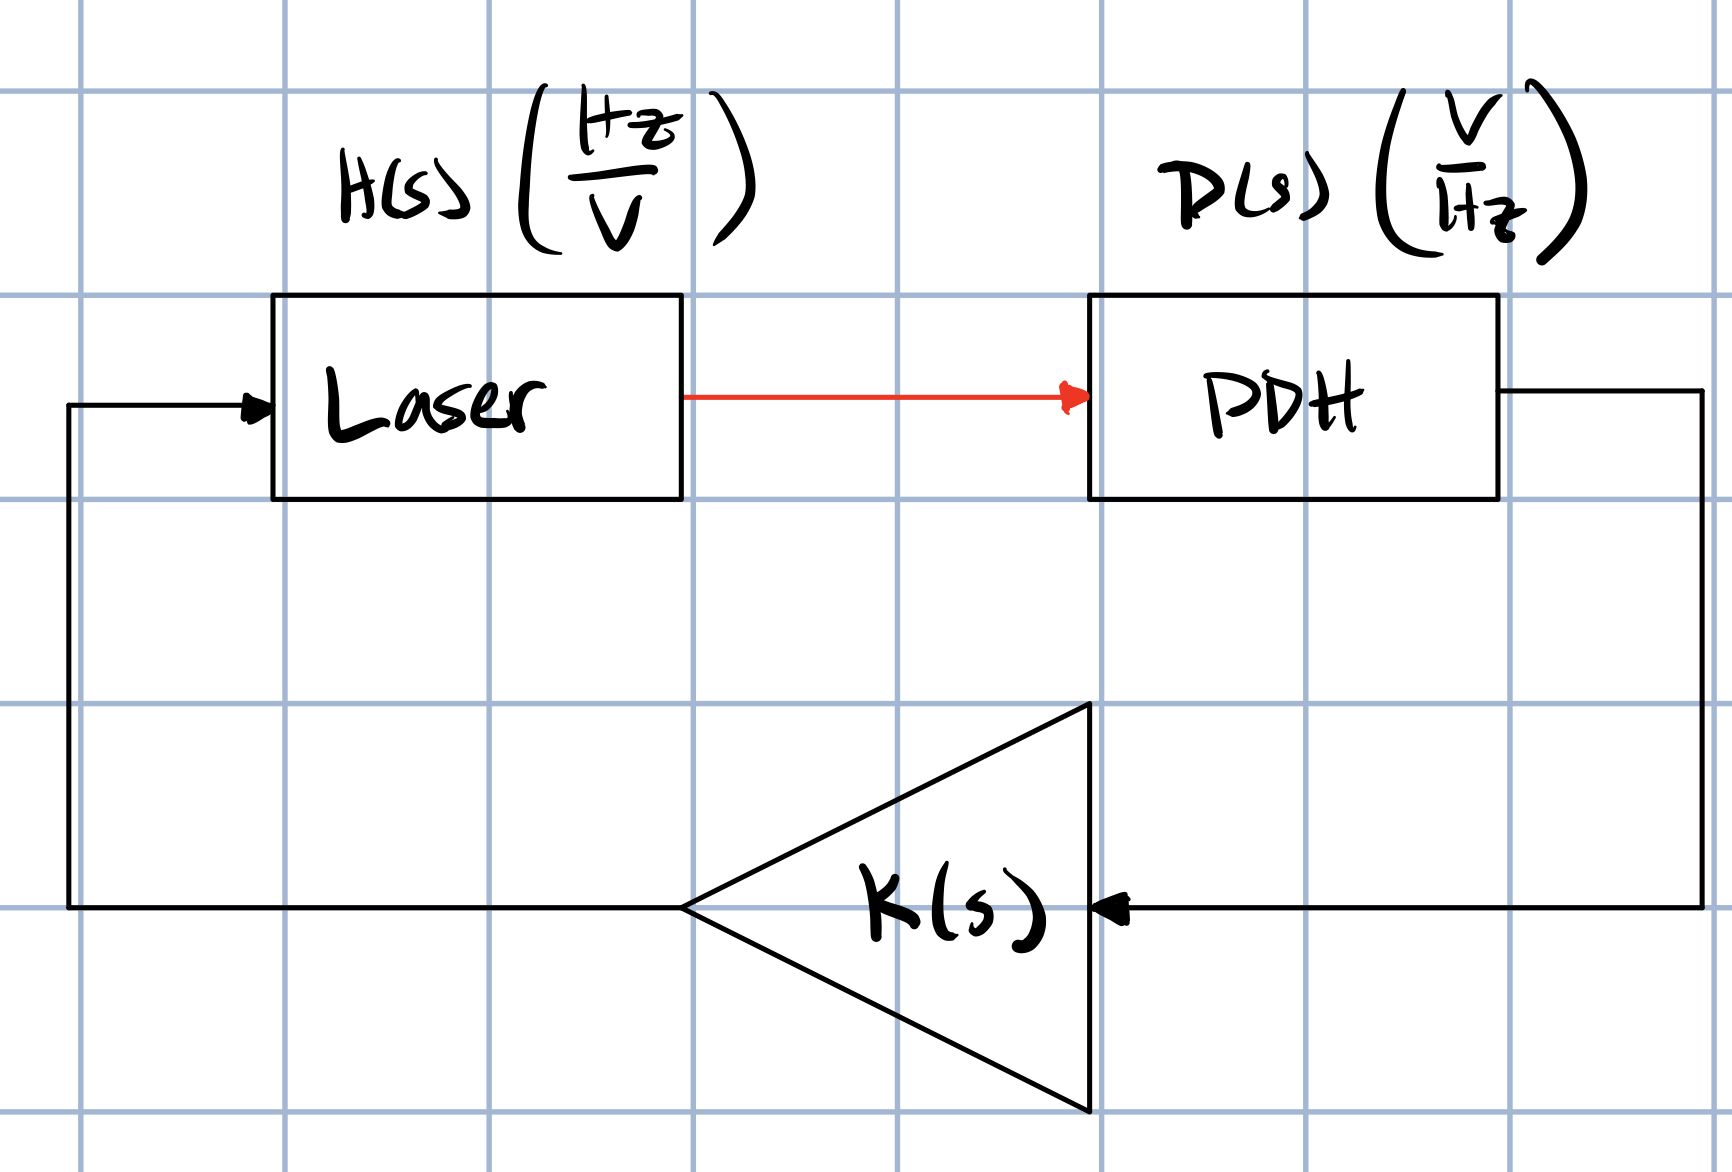 H(s) (Hz/V)
D(s) (V/Hz)
Laser
PDH
K(s)